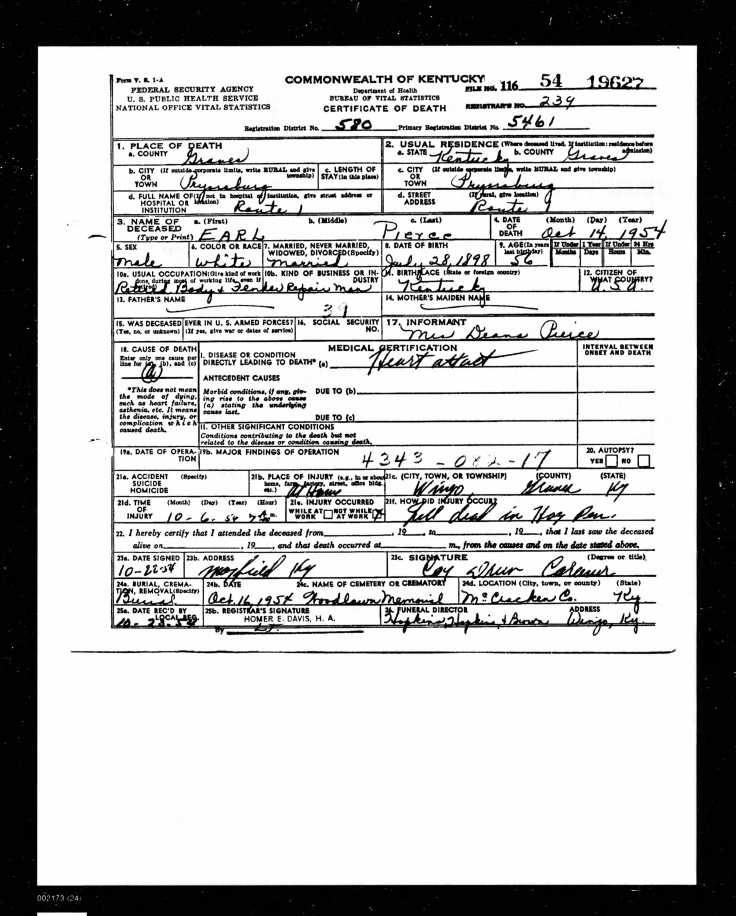 Form V. S. 1-A
FEDERAL SECURITY AGENCY
U. S. PUBLIC HEALTH SERVICE
NATIONAL OFFICE VITAL STATISTICS
COMMONWEALTH OF KENTUCKY
Department of Health
BUREAU OF VITAL STATISTICS
CERTIFICATE OF DEATH
FILE NO. 116 54 19627
REGISTRAR'S NO. 239
Registration District No. 580 Primary Registration District No. 5461
1. PLACE OF DEATH
a. COUNTY Graves
2. USUAL RESIDENCE (Where deceased lived. If institution: residence before admission)
a. STATE Kentucky b. COUNTY Graves
b. CITY (If outside corporate limits, write RURAL and give township)
OR
TOWN Pryorsburg
c. LENGTH OF
STAY (in this place)
c. CITY (If outside corporate limits, write RURAL and give township)
OR
TOWN Pryorsburg
d. FULL NAME OF (If not in hospital or institution, give street address or location)
HOSPITAL OR
INSTITUTION Route 1
d. STREET (If rural, give location)
ADDRESS Route 1
3. NAME OF DECEASED (Type or Print)
a. (First) EARL b. (Middle) c. (Last) Pierce
4. DATE OF DEATH (Month) (Day) (Year)
Oct 14, 1954
5. SEX
male
6. COLOR OR RACE
white
7. MARRIED, NEVER MARRIED, WIDOWED, DIVORCED (Specify)
married
8. DATE OF BIRTH
July 28, 1898
9. AGE (In years last birthday) 56
If Under 1 Year Months Days
If Under 24 Hrs Hours Min.
10a. USUAL OCCUPATION (Give kind of work done during most of working life, even if
Retired Body & Fender Repair Man
10b. KIND OF BUSINESS OR INDUSTRY
11. BIRTHPLACE (State or foreign country)
Kentucky
12. CITIZEN OF WHAT COUNTRY?
U.S.A.
13. FATHER'S NAME
14. MOTHER'S MAIDEN NAME
39
15. WAS DECEASED EVER IN U. S. ARMED FORCES?
(Yes, no, or unknown) (If yes, give war or dates of service)
16. SOCIAL SECURITY NO.
17. INFORMANT
Mrs Deana Pierce
18. CAUSE OF DEATH
Enter only one cause per line for (a), (b), and (c)
(a)
MEDICAL CERTIFICATION
INTERVAL BETWEEN ONSET AND DEATH
I. DISEASE OR CONDITION
DIRECTLY LEADING TO DEATH* (a) Heart attact
ANTECEDENT CAUSES
*This does not mean the mode of dying, such as heart failure, asthenia, etc. It means the disease, injury, or complication which caused death.
Morbid conditions, if any, giving rise to the above cause (a) stating the underlying cause last.
DUE TO (b)
DUE TO (c)
II. OTHER SIGNIFICANT CONDITIONS
Conditions contributing to the death but not related to the disease or condition causing death.
19a. DATE OF OPERATION
19b. MAJOR FINDINGS OF OPERATION
4343-082-17
20. AUTOPSY?
YES NO
21a. ACCIDENT (Specify)
SUICIDE
HOMICIDE
21b. PLACE OF INJURY (e.g., in or about home, farm, factory, street, office bldg., etc.)
At Home
21c. (CITY, TOWN, OR TOWNSHIP) (COUNTY) (STATE)
Wingo Graves Ky
21d. TIME OF INJURY (Month) (Day) (Year) (Hour)
10-6-54 m.
21e. INJURY OCCURRED
WHILE AT WORK NOT WHILE AT WORK
21f. HOW DID INJURY OCCUR?
fell dead in Hog Pen.
22. I hereby certify that I attended the deceased from , 19 , to , 19 , that I last saw the deceased
alive on , 19 , and that death occurred at m., from the causes and on the date stated above.
23a. DATE SIGNED
10-22-54
23b. ADDRESS
Mayfield Ky
23c. SIGNATURE (Degree or title)
Coy Coroner
24a. BURIAL, CREMATION, REMOVAL (Specify)
Burial
24b. DATE
Oct. 16, 1954
24c. NAME OF CEMETERY OR CREMATORY
Woodlawn Memorial
24d. LOCATION (City, town, or county) (State)
McCracken Co. Ky
25a. DATE REC'D BY LOCAL REG.
25b. REGISTRAR'S SIGNATURE
HOMER E. DAVIS, H. A.
By
26. FUNERAL DIRECTOR ADDRESS
Hopkins, Hopkins & Brown Wingo, Ky.
002173 (24)